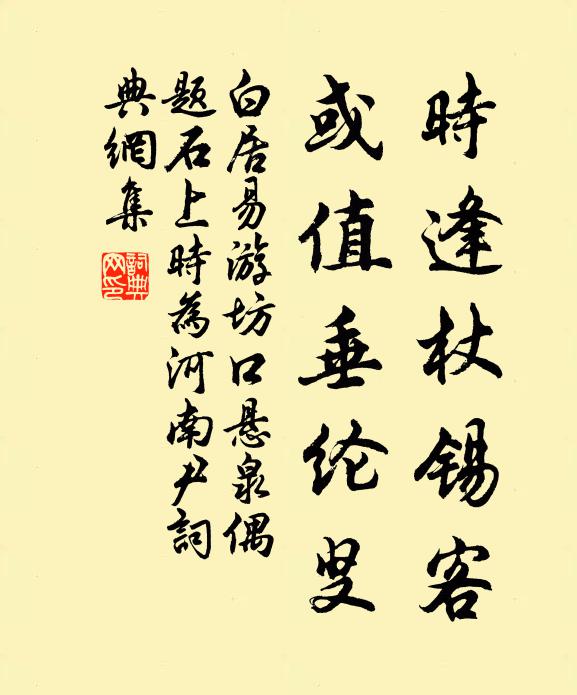 時逢杖锡客
或值垂纶叟
白居易游坊口悬泉偶
题石上時為河南尹詞
典網集
詞典网印